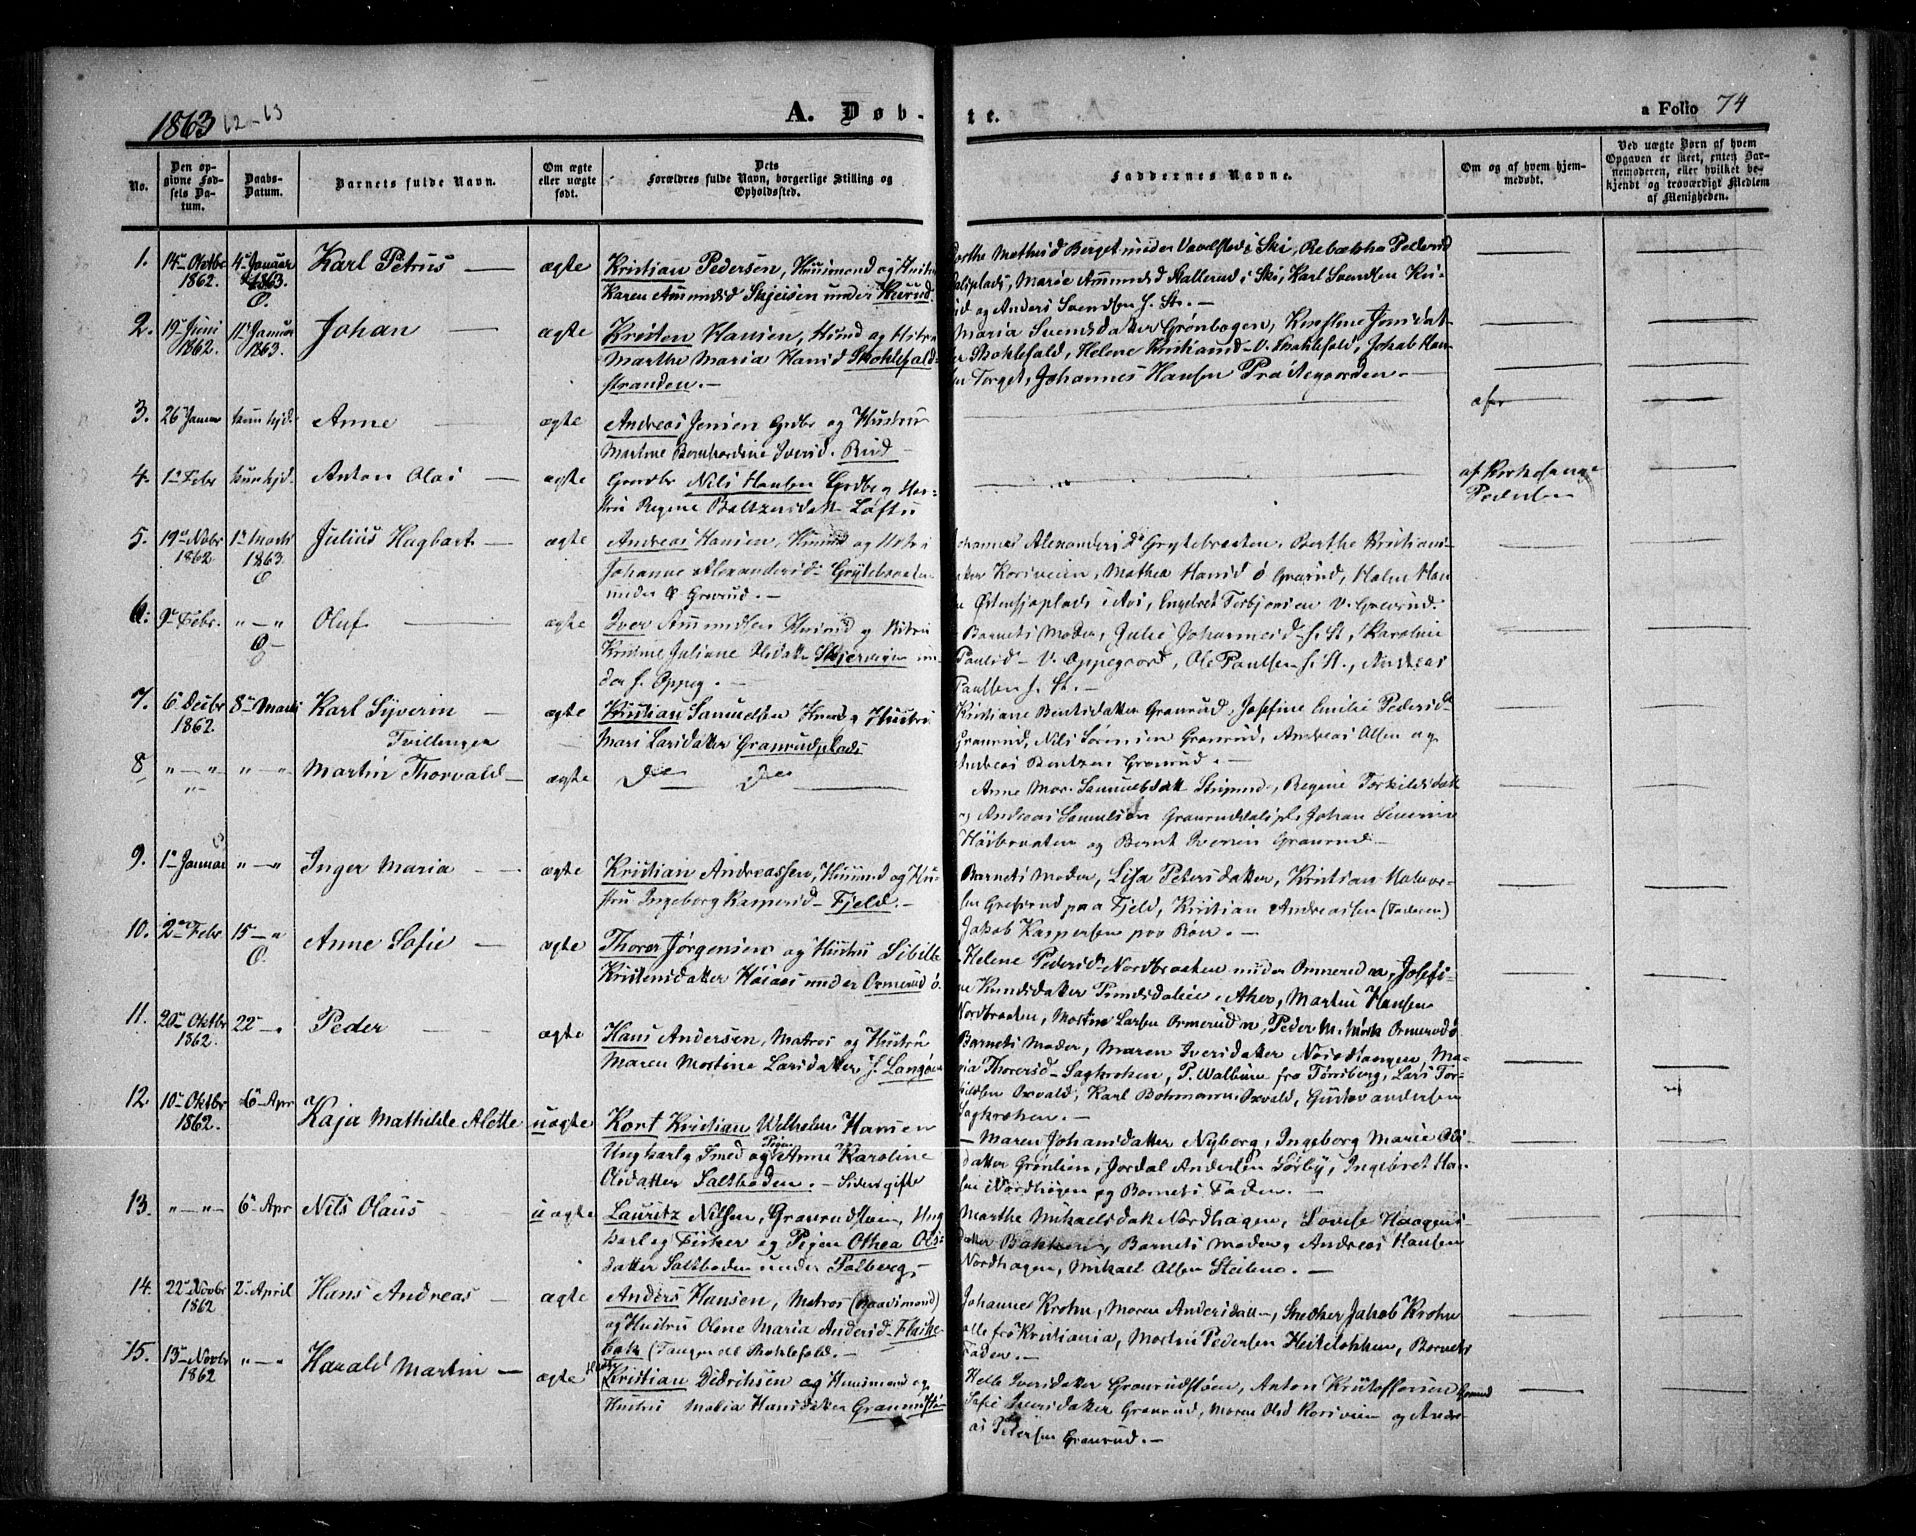 1863 62-63
A. Døb-
te.
a Folio 74
No.
Den op-
givne Fød-
sels Da-
tum.
Daabs-
Datum.
Barnets fulde Navn.
Om ægte
eller uægte
født.
Dets
Forældres fulde Navn, borgerlige Stilling og
Opholdssted.
Faddernes Navne.
Om og af hvem hjem-
medøbt.
Ved uægte Børn af hvem
Opgaven er skeet, enten Bar-
nemoderen, eller hvilket be-
kjendt og troværdigt Medlem
af Menigheden.
1. 14 Oktbr 1862. 4 Januar 1863. Karl Petrus — ægte
Kristian Pedersen, Huusmand og Hustru
Karen Amundsd Skjeisen under
Berthe Mathisd Berget under Vevelstad i Ski, Rebekka Pedersd
Marie Amundsd Stallerud i Ski, Karl Svendsen
og Anders Svendsen f. St. —
2. 19 Juni 1862. 11 Januar 1863. Johan — ægte
Kristen Hansen, Husmd og Hstru
Marthe Maria Hansd Kohlefald-
stranden. —
Maria Svendsdatter Grønbogen, Jensdat-
Helene Kristiansd V. Jakob Han-
sen Torget, Johannes Hansen Præstegaarden. —
3. 26 Januar hjd. Anne — ægte
Andreas Jensen Grdbr og Hustru
Martine Bernhardine Iversd. Rud
4. 1 Febr hjd. Anton Olai — ægte
Grdbr Nils Hansen Grdbr og Hus-
tru Regine Baltzersdatt Løftu
af
Pedersen
5. 19 Nobr 1862 1 Marts 1863 Julius Hagbart — ægte
Andreas Hansen, Husmd og Hstru
Johanne Alexandersd Grytebraaten
under Ø Greverud. —
Johannes Alexandersd Grytebraaten, Berthe Kristians-
datter Korsveien, Mathea Hansd Ø Greverud, Halvor Han-
sen Østensjøplads i Aas, Engebret Torbjørnsen V. Greverud.
6. 9 Febr. " — " Oluf — ægte
Iver Amundsen Husmd og Hstru
Kristine Juliane Olsdatter Skjerveien un-
der S. Oppeg. —
Barnets Moder, Julie Johannesd f. St, Karoline
Paulsd V. Oppegaard, Ole Paulsen f. St., Andreas
Paulsen f. St. —
7. 6 Decbr 1862. 8 Marts Karl Syverin — ægte
Tvillinger
Kristian Samuelsen Husmd og Hustru
Mari Larsdatter Granrudplads
Kristiane Bentsdatter Granrud, Josefine Emilie Pedersd
Granrud, Nils Sørensen Granrud, Andreas Olsen og
Andreas Bentzen Granrud. —
8 " — " " — " Martin Thorvald — ægte
Do Do —
Anne Mar. Samuelsdatt Regine Torkildsdatt
og Andreas Samuelsen Johan Severin
Høibraaten og Bernt Iversen Granrud —
9. 1 Januar " — " Inger Maria — ægte
Kristian Andreassen, Husmd og Hu-
stru Ingeborg Kaspersd — Fjeld. —
Barnets Moder, Lisa Petersdatter, Kristian Halvor-
sen Greverud paa Fjeld, Kristian Andreassen (Faderen)
Jakob Kaspersen paa Røer. —
10. 2 Febr 15 — " Anne Sofie — ægte
Thorer Jørgensen og Hustru Sibille
Kristensdatter Høiaas under Ormerud ø.
Helene Pedersd Nordbraaten under Ormerud n, Josefi-
ne Knudsdatter i Aker, Martin Hansen
Nordbraaten, Martin Larsen Ormerud n, Peder M. Mørk Ormerud ø
11. 20 Oktbr 1862. 22 — " Peder — ægte
Hans Andersen, Matros og Hustru
Maren Martine Larsdatter f. Langøen
Barnets Moder, Maren Iversdatter Nordstrangen, Ma-
ria Thorersd Sagkroken, P. Wallum fra Tønsberg, Lars Tor-
kildsen Oxvald, Karl Bohrmann Oxvald, Gustav Andersen
Sagkroken. —
12. 10 Oktbr 1862. 6 Apr Kaja Mathilde Alette uægte
Kort Kristian Wilhelm Hansen
Ungkarl og Smed og Pigen Anne Karoline
Olsdatter Saltboden. — Siden gifte
— Maren Johansdatter Nyborg, Ingeborg Marie Ols-
datter Grønlien, Jordal Andersen Sørby, Ingebret Han-
sen i Nordhagen og Barnets Fader. —
13. " — " 6 Apr Nils Olaus uægte
Lauritz Nilsen, Granrudstøen, Ung-
karl og Fisker og Pigen Othea Ols-
datter Saltboden under Folberg. —
Marthe Mikaelsdatt Nordhagen, Lovise Haagens-
datter Bakken, Barnets Moder, Andreas Hansen
Nordhagen, Mikael Olsen Stilene. —
14. 22 Novbr 1862 2 April Hans Andreas — ægte
Anders Hansen, Matros (Huusmand)
og Hustru Olene Maria Andersd Flaske-
bæk (Tangen
Johannes Krohn, Maren Andersdatt — Snedker Jakob Krohn
alle fra Kristiania, Martin Pedersen Barnets
Fader. —
15. 13 Novbr 1862 " — " Harald Martin — ægte
Kristian Didriksen og Huusmand og
Hustru Maria Hansdatter Granrudstøen
Helle Iversdatter Granrudstøen, Anton Kristoffersen Granrud
Sofie Iversdatter Granrud, Maren Olsd Korsveien og Andre-
as Petersen Granrud. —